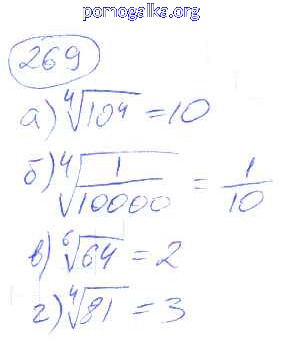 pomogalka.org
269
а) ⁴√10⁴ = 10
б) ⁴√(1/10000) = 1/10
в) ⁶√64 = 2
г) ⁴√81 = 3